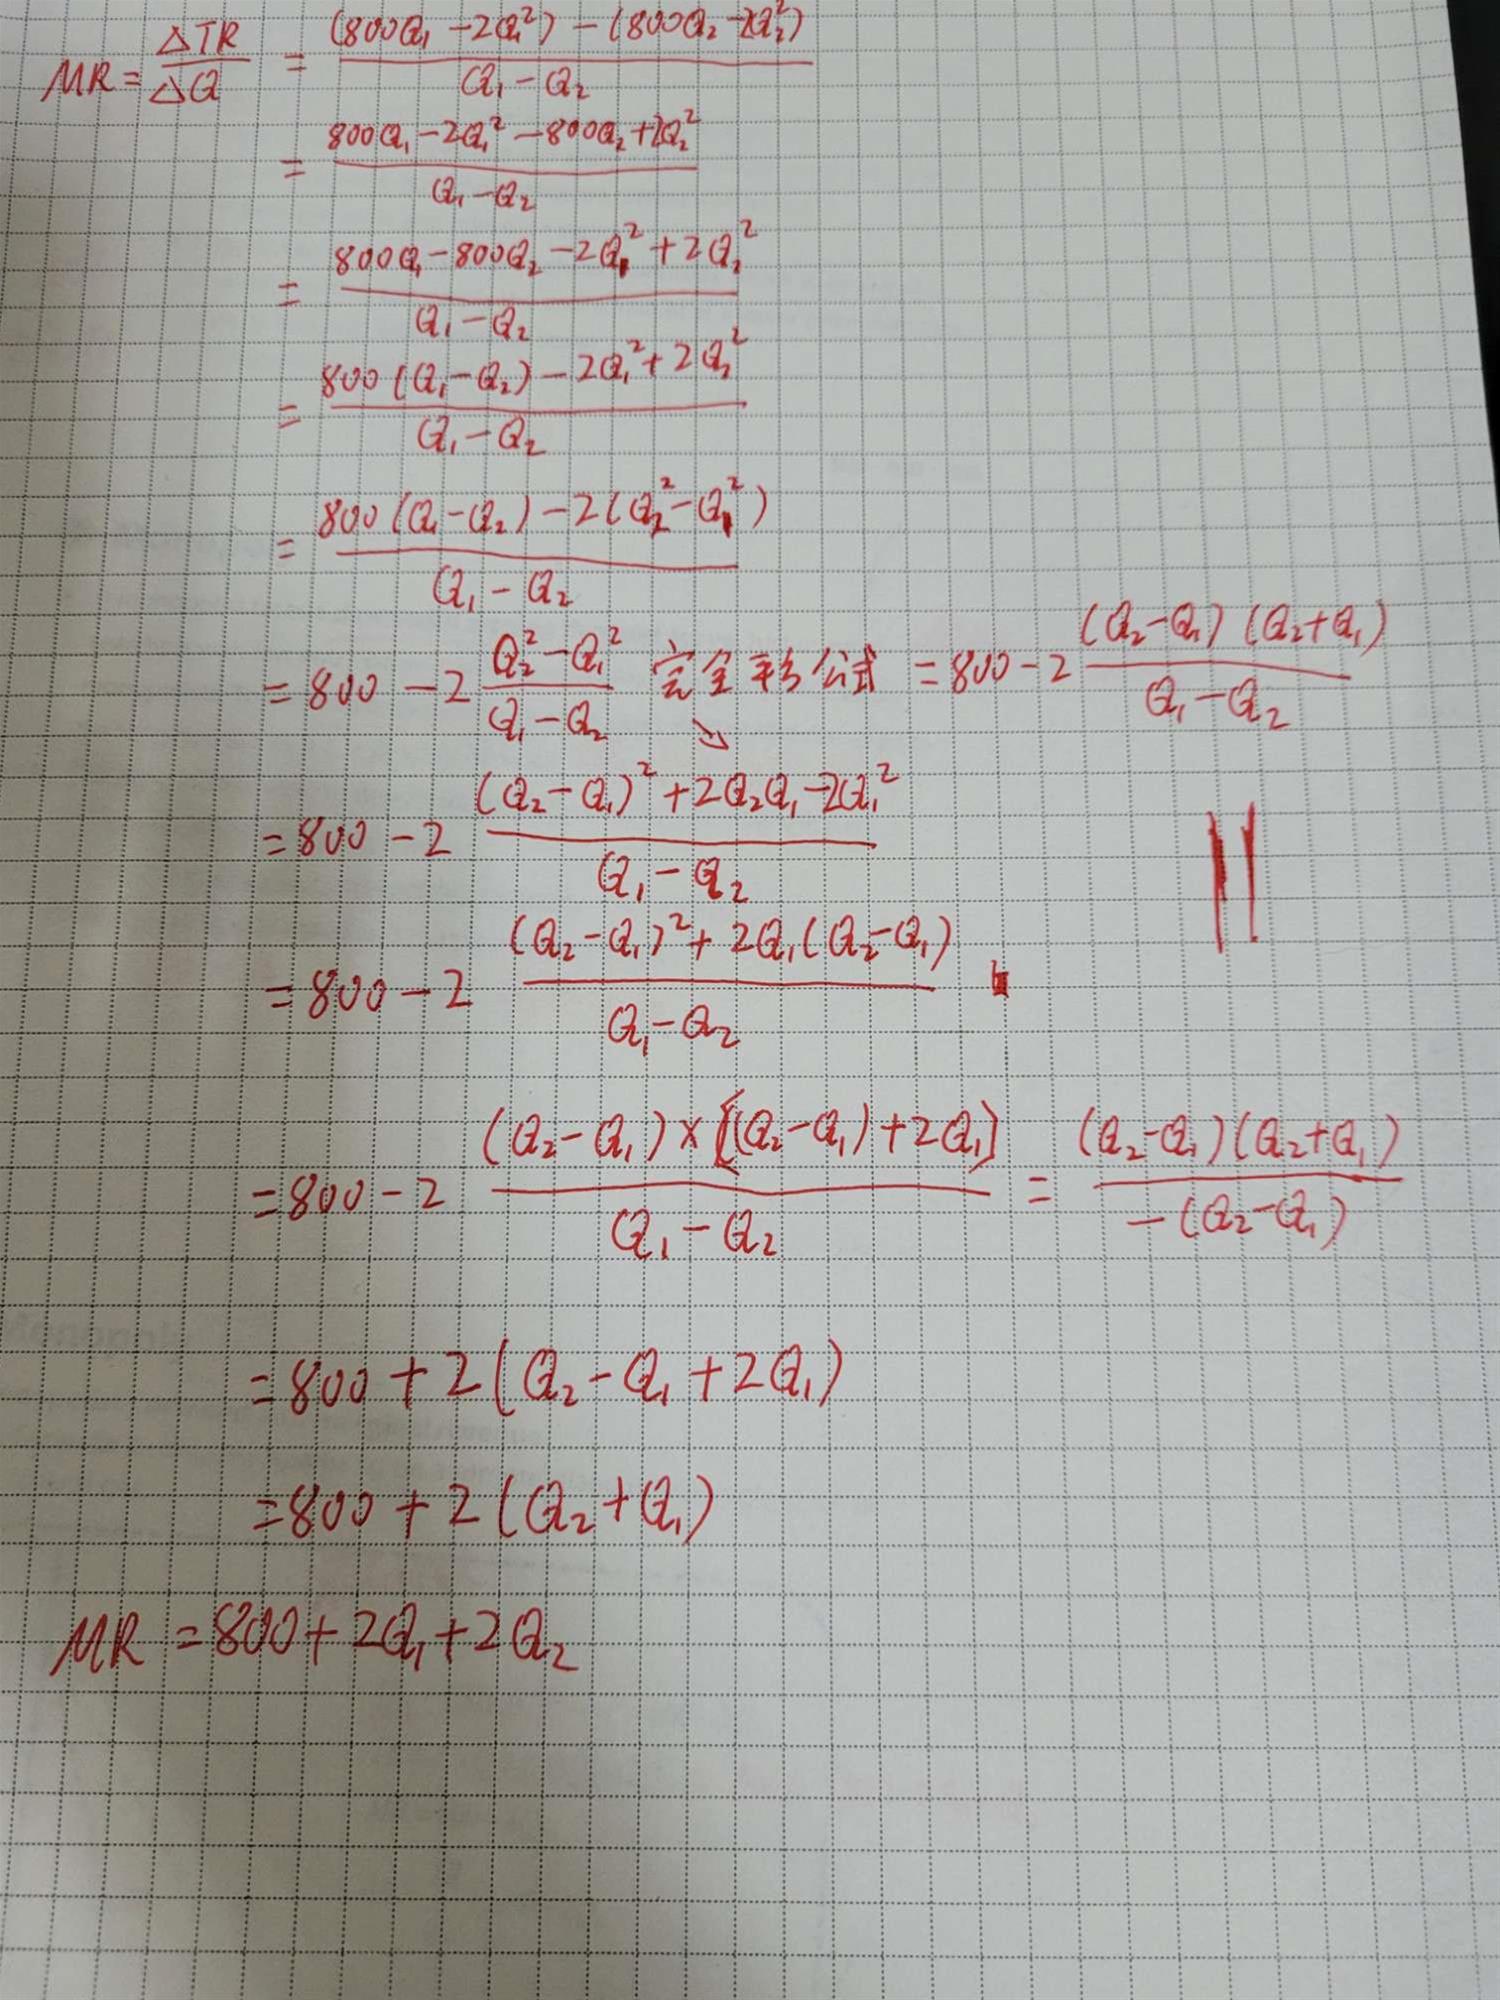 MR = ΔTR/ΔQ = (800Q₁ - 2Q₁²) - (800Q₂ - 2Q₂²) / Q₁ - Q₂
= 800Q₁ - 2Q₁² - 800Q₂ + 2Q₂² / Q₁ - Q₂
= 800Q₁ - 800Q₂ - 2Q₁² + 2Q₂² / Q₁ - Q₂
= 800(Q₁ - Q₂) - 2Q₁² + 2Q₂² / Q₁ - Q₂
= 800(Q₁ - Q₂) - 2(Q₂² - Q₁²) / Q₁ - Q₂
= 800 - 2 Q₂² - Q₁² / Q₁ - Q₂ 完全 公式 = 800 - 2 (Q₂ - Q₁)(Q₂ + Q₁) / Q₁ - Q₂
= 800 - 2 (Q₂ - Q₁)² + 2Q₂Q₁ - 2Q₁² / Q₁ - Q₂
= 800 - 2 (Q₂ - Q₁)² + 2Q₁(Q₂ - Q₁) / Q₁ - Q₂
= 800 - 2 (Q₂ - Q₁) × [(Q₂ - Q₁) + 2Q₁] / Q₁ - Q₂ = (Q₂ - Q₁)(Q₂ + Q₁) / -(Q₂ - Q₁)
= 800 + 2(Q₂ - Q₁ + 2Q₁)
= 800 + 2(Q₂ + Q₁)
MR = 800 + 2Q₁ + 2Q₂